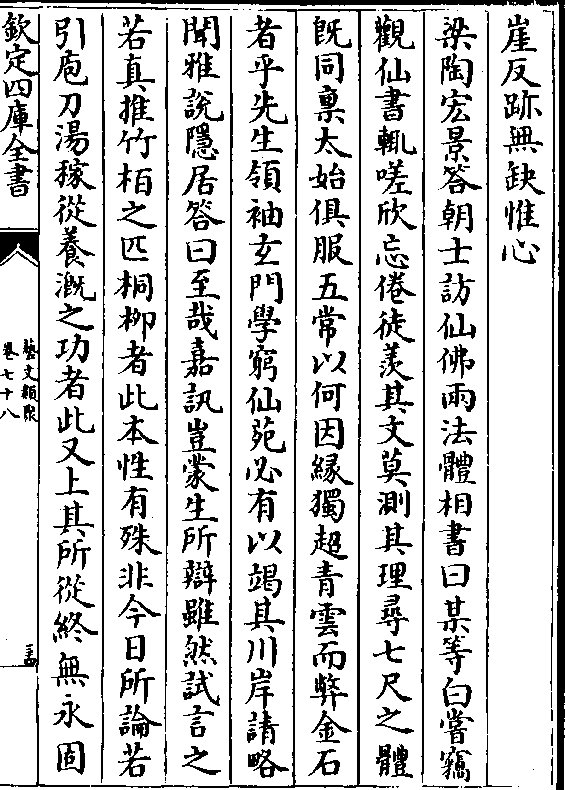 崖反跡無缺惟心
梁陶宏景答朝士訪仙佛兩法體相書曰某等白嘗竊
觀仙書輒嗟欣忘倦徒羨其文莫測其理尋七尺之體
既同稟太始俱服五常以何因緣獨超青雲而弊金石
者乎先生領袖玄門學窮仙苑必有以竭其川岸請略
聞雅説隱居答曰至哉嘉訊豈蒙生所辯雖然試言之
若直推竹栢之匹桐柳者此本性有殊非今日所論若
引庖刀湯稼從養溉之功者此又上其所從終無永固
欽定四庫全書
藝文類聚
卷七十八